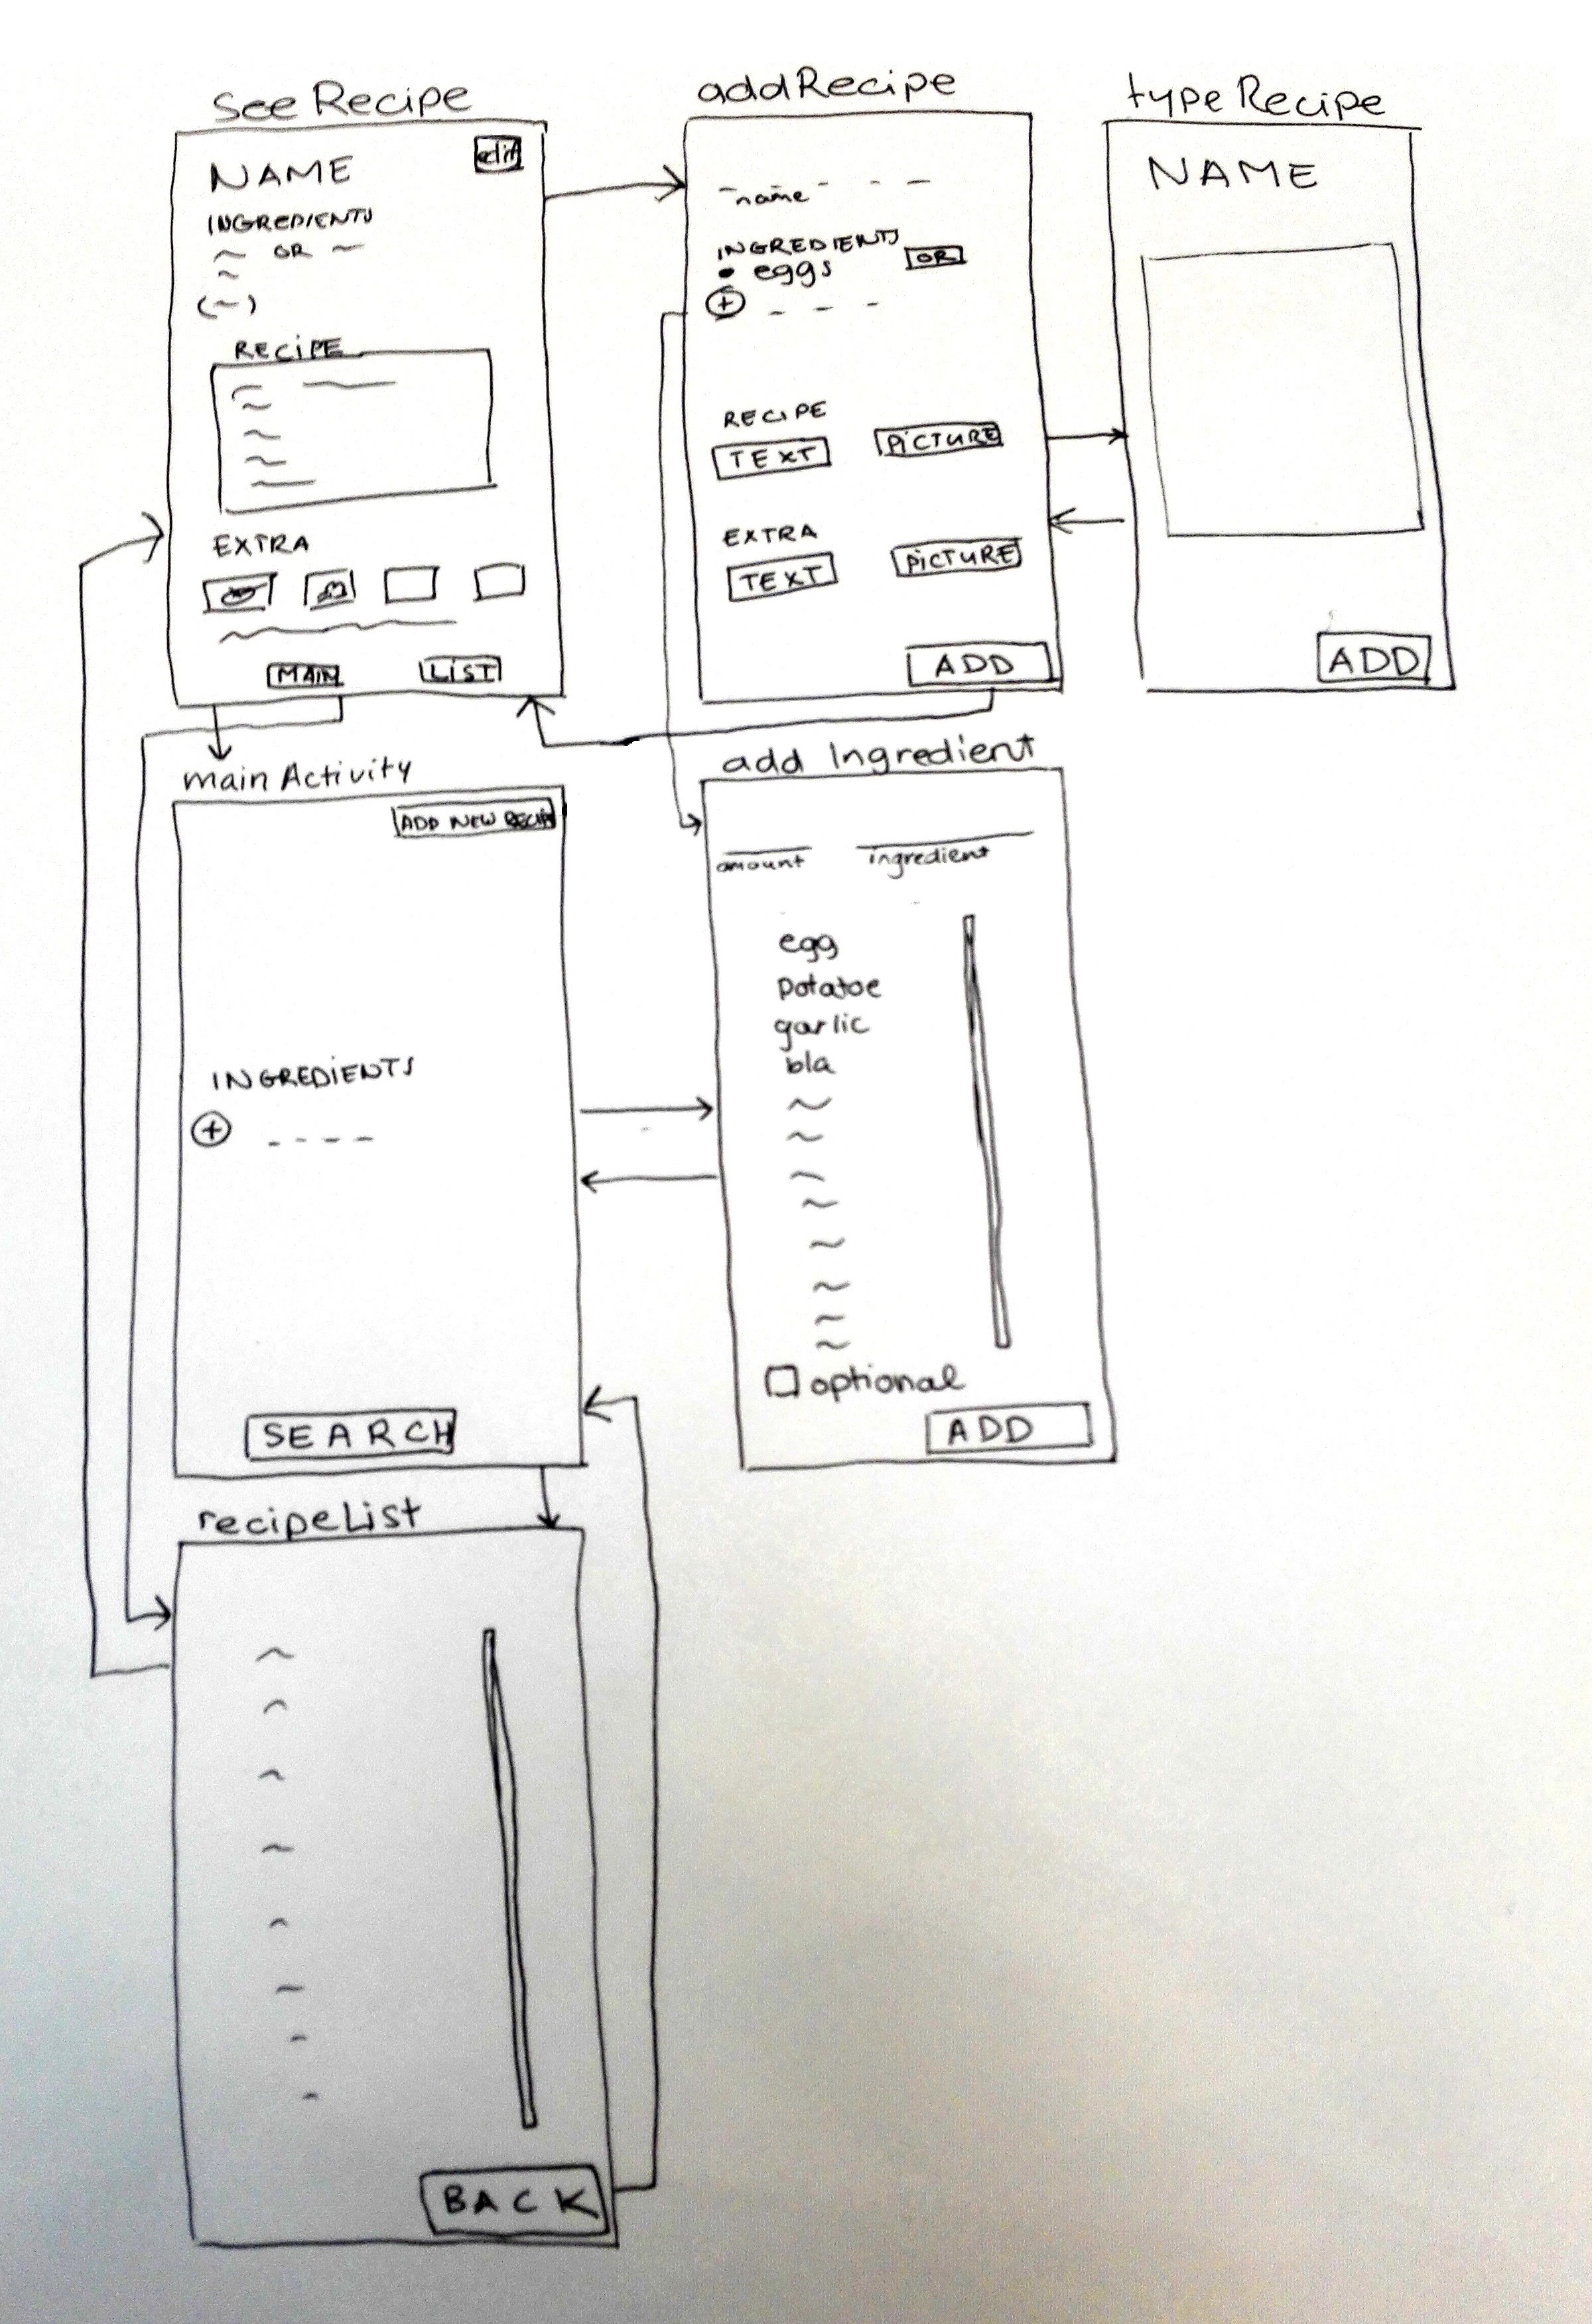 see Recipe
NAME
edit
INGREDIENTS
OR
RECIPE
EXTRA
MAIN
LIST
addRecipe
name
INGREDIENTS
• eggs
OR
+
RECIPE
TEXT
PICTURE
EXTRA
TEXT
PICTURE
ADD
typeRecipe
NAME
ADD
mainActivity
ADD NEW RECIPE
INGREDIENTS
+
SEARCH
add Ingredient
amount ingredient
egg
potatoe
garlic
bla
optional
ADD
recipeList
BACK